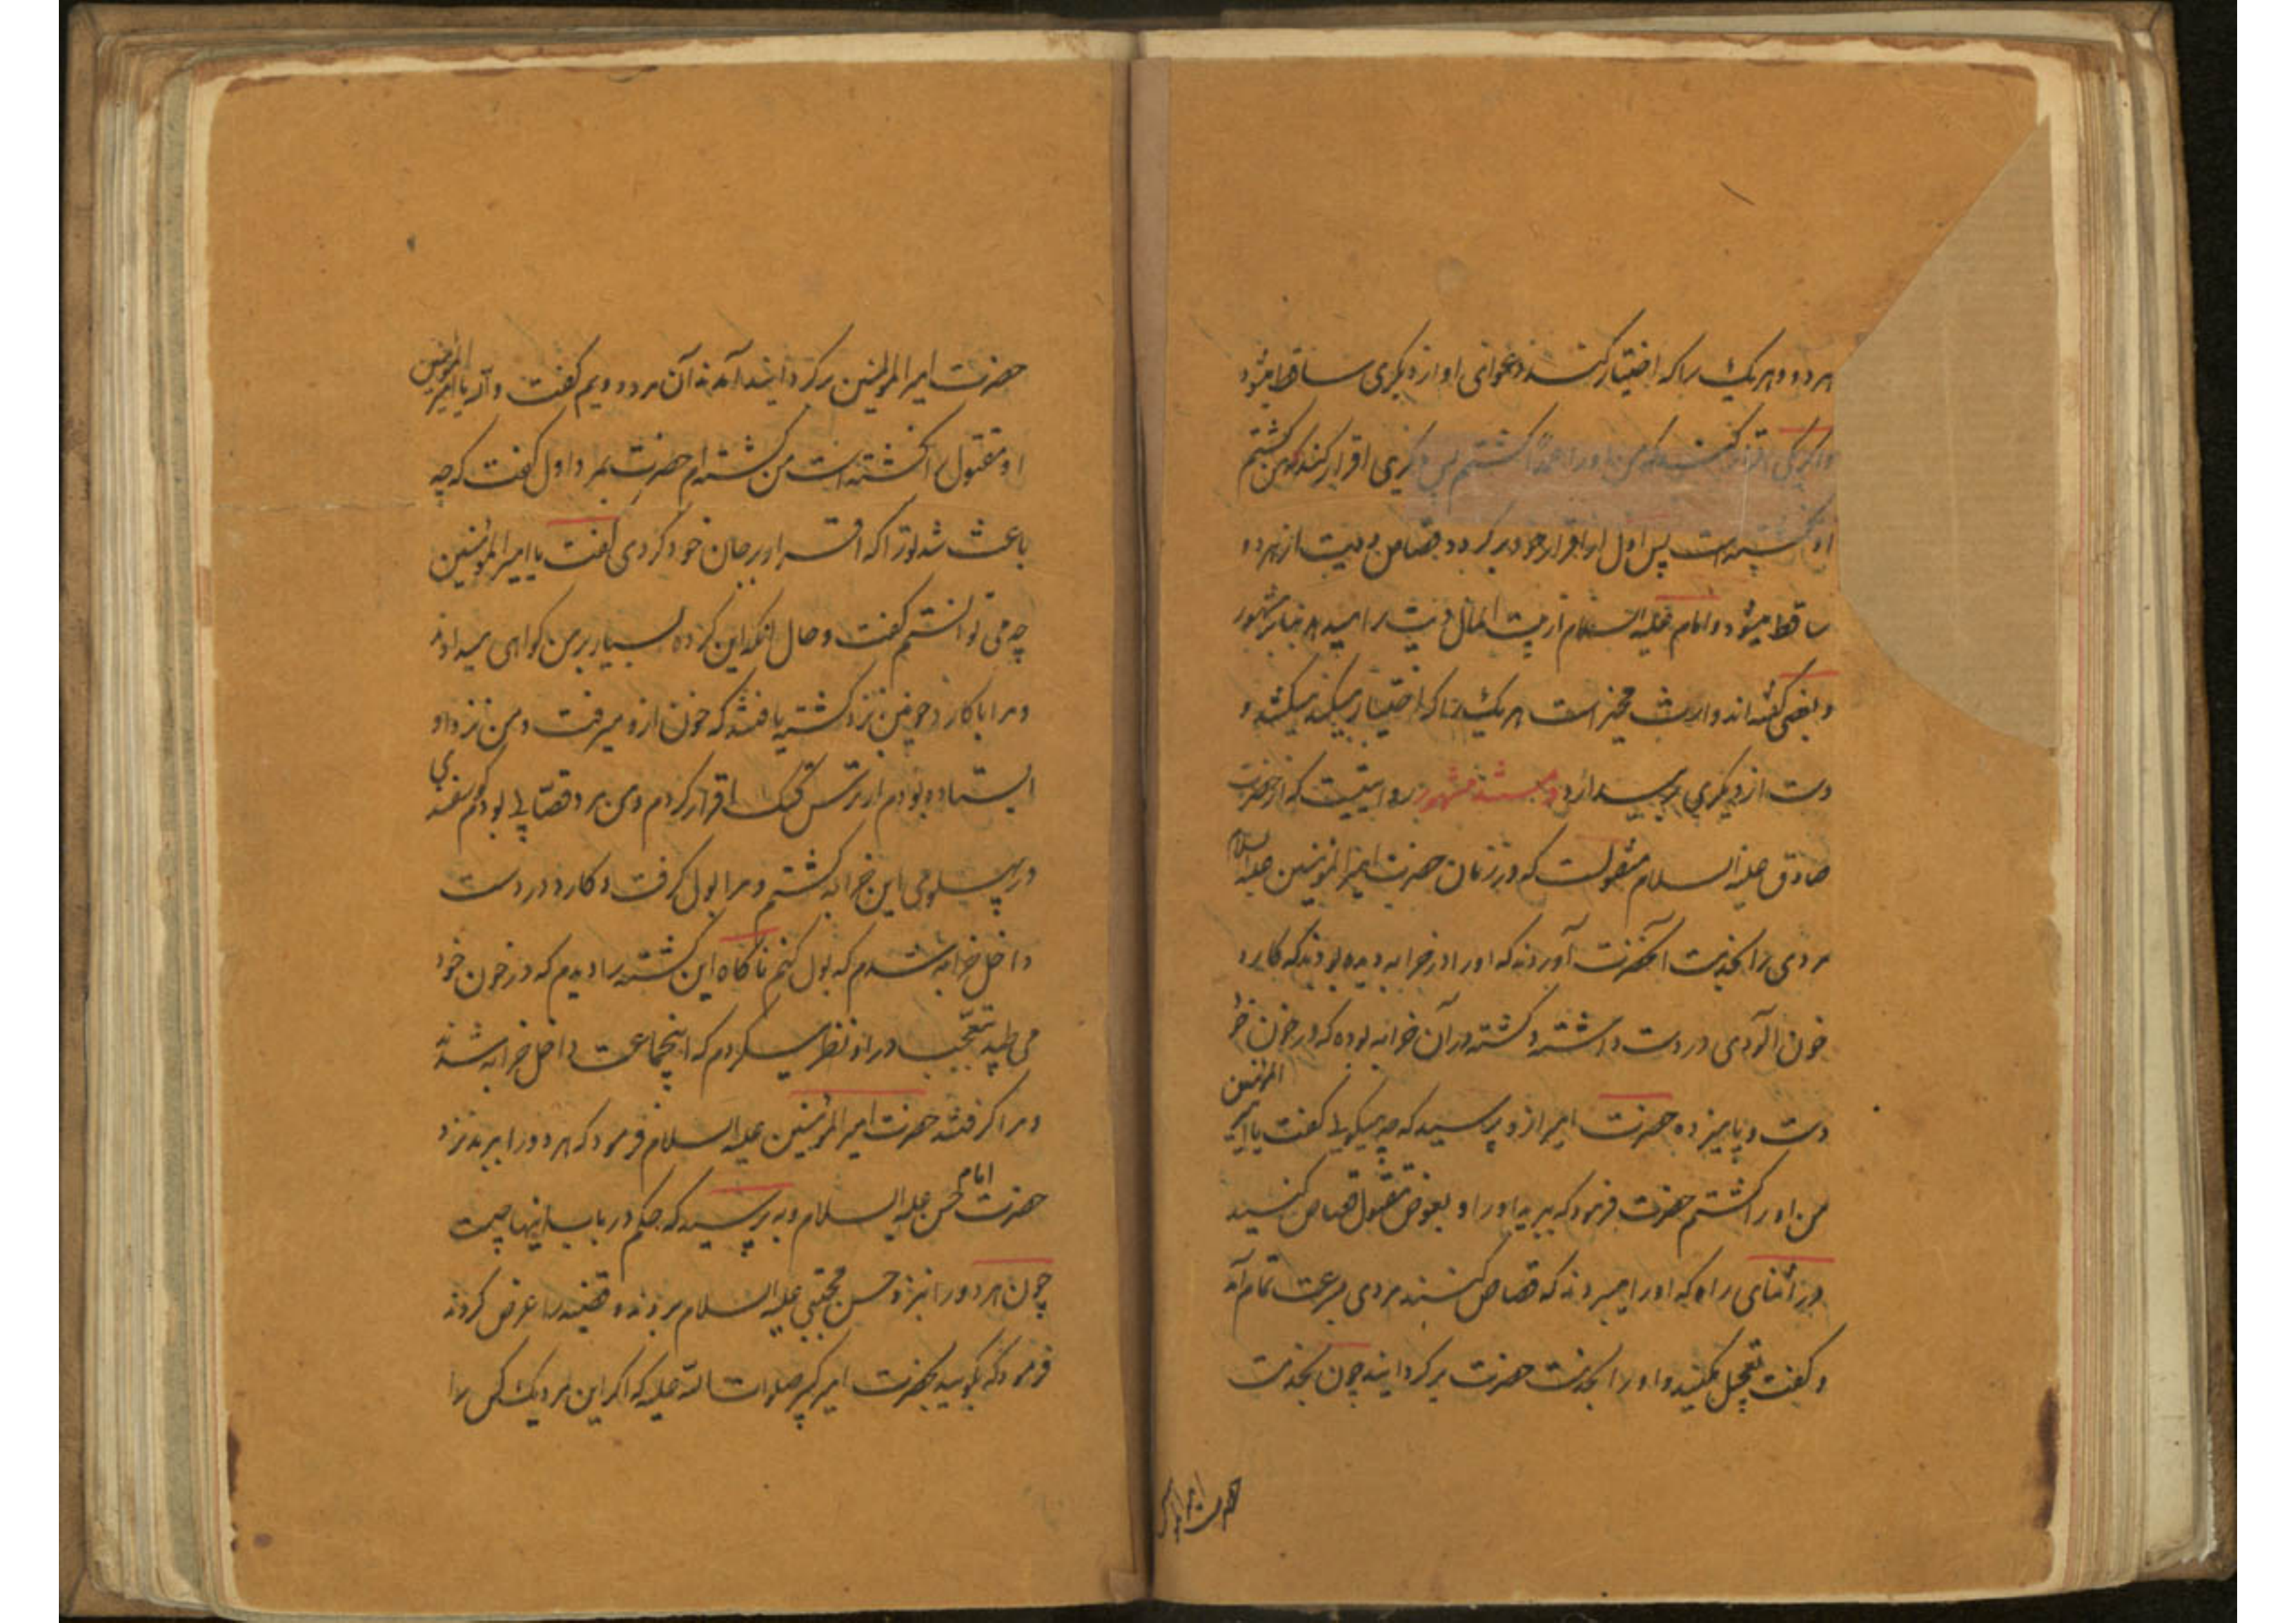 هر دو و هر یک را که اختیار کنند دعوای او از دیگری ساقط میشود
و اگر یکی اقرار کند که من او را عمداً کشتم پس دیگری اقرار کند که من کشتم
او پس اول از اقرار خود بر گردد قصاص و دیت از هر دو
ساقط میشود و امام علیه السلام از بیت المال دیت را میدهد بنا بر مشهور
و بعضی گفته اند وارث مخیر است هر یک را که اختیار میکند میکشد و
دست از دیگری بر میدارد و مستند مشهور روایتیست که از حضرت
صادق علیه السلام منقولست که در زمان حضرت امیر المؤمنین علیه السلام
مردی را بخدمت آنحضرت آوردند که او را در خرابه دیده بودند که کارد
خون آلودی در دست داشته و کشته در آن خرابه بوده که در خون خود
دست و پا میزده حضرت امیر از و پرسید که چه میگویی گفت یا امیر المؤمنین
من او را کشتم حضرت فرمود که ببرید او را و بعوض مقتول قصاص کنید
در اثنای راه که او را میبردند که قصاص کنند مردی بسرعت تمام آمد
و گفت تعجیل مکنید و او را بخدمت حضرت بر گردانید چون بخدمت
حضرت امیر
حضرت امیر المؤمنین بر گردانیدند آن مرد دویم گفت والله یا امیر المؤمنین
او مقتول را نکشته است من کشته ام حضرت بمرد اول گفت که چه
باعث شد تو را که اقرار بر جان خود کردی گفت یا امیر المؤمنین
چه می توانستم گفت و حال آنکه این گروه بسیار بر من گواهی میدادند
و مرا با کارد خونین نزد کشته یافتند که خون از و میرفت و من نزد او
ایستاده بودم از ترس کتک اقرار کردم و من مرد قصابی بودم گوسفندی
در پهلوی این خرابه کشتم و مرا بول گرفت و کارد در دست
داخل خرابه شدم که بول کنم ناگاه این کشته را دیدم که در خون خود
می طپید تعجب در او نظر میکردم که اینجماعت داخل خرابه شدند
و مرا گرفتند حضرت امیر المؤمنین علیه السلام فرمود که هر دو را ببرید نزد
حضرت امام حسن علیه السلام و بپرسید که حکم در باب اینها چیست
چون هر دو را نزد حسن مجتبی علیه السلام بردند و قضیه را عرض کردند
فرمود که بگویید بحضرت امیر کبیر صلوات الله علیه که اگر این مرد یک کس را